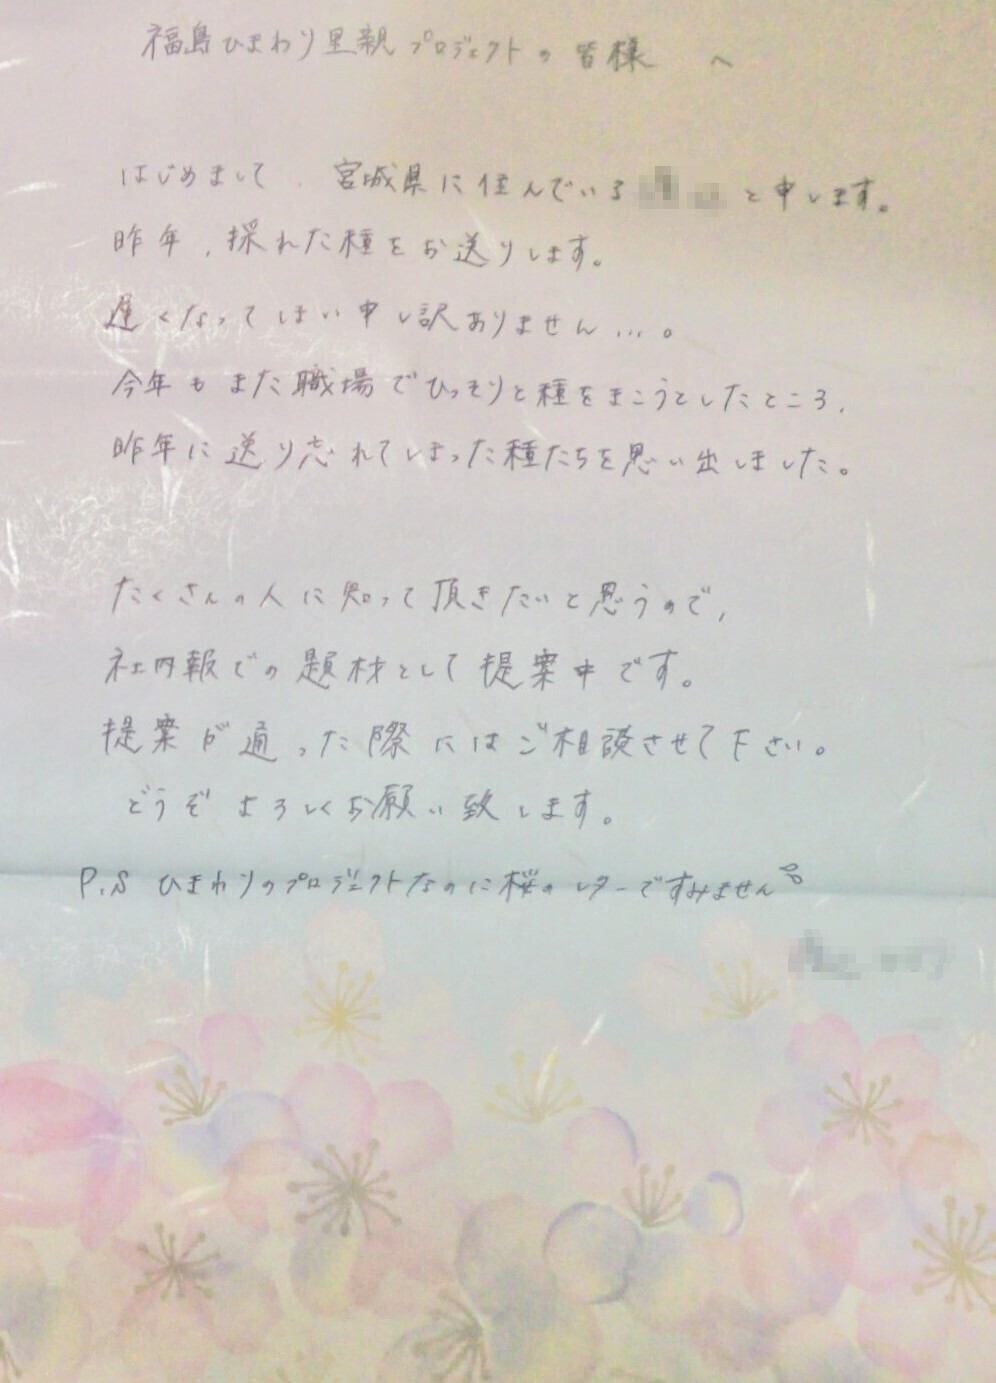 福島ひまわり里親プロジェクトの皆様 へ
はじめまして、宮城県に住んでいる と申します。
昨年、採れた種をお送りします。
遅くなってしまい申し訳ありません…。
今年もまた職場でひっそりと種をまこうとしたところ、
昨年に送り忘れてしまった種たちを思い出しました。
たくさんの人に知って頂きたいと思うので、
社内報での題材として提案中です。
提案が通った際にはご相談させて下さい。
どうぞよろしくお願い致します。
P.S ひまわりのプロジェクトなのに桜のレターですみません